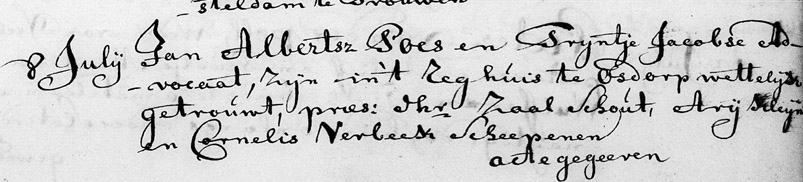 -steldam te Trouwen
8 July Jan Albertsz Poes en Tryntje Jacobse Ad-
-vocaat, zijn in't Reghuis te Osdorp wettelijk
getrouwt, præs: dhr. Zaal Schout, Arij Kleijn
en Cornelis Verbeek Scheepenen
acte gegeeven